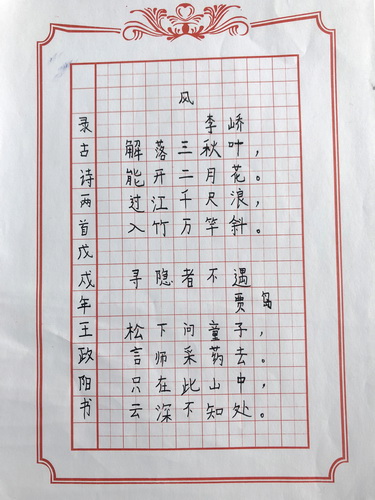 风
李峤
解落三秋叶，
能开二月花。
过江千尺浪，
入竹万竿斜。
寻隐者不遇
贾岛
松下问童子，
言师采药去。
只在此山中，
云深不知处。
录古诗两首戊戌年王政阳书